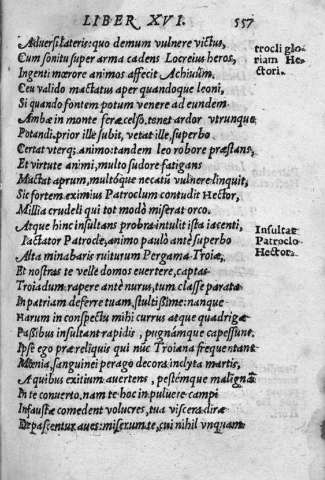 LIBER XVI. 557
Aduersi lateris: quo demum vulnere victus,
Cum sonitu super arma cadens Locreius heros,
Ingenti mœrore animos affecit Achiuûm.
Ceu valido mactatus aper quandoque leoni,
Si quando fontem potum venere ad eundem
Ambæ in monte feræ celso, tenet ardor vtrunque
Potandi, prior ille subit, vetat ille, superbo
Certat vterq; animo: tandem leo robore præstans,
Et virtute animi, multo sudore fatigans
Mactat aprum, multóque necatū vulnere linquit,
Sic fortem eximius Patroclum contudit Hector,
Millia crudeli qui tot modò miserat orco.
Atque hinc insultans probra intulit ista iacenti,
Iactator Patrocle, animo paulò antè superbo
Alta minabaris ruiturum Pergama Troiæ,
Et nostras te velle domos euertere, captas
Troiadum: rapere antè nurus, tum classe parata
In patriam deferre tuam, stultissime: nanque
Harum in conspectu mihi currus atque quadrigæ
Passibus insultant rapidis, pugnámque capessunt.
Ipse ego præ reliquis qui nūc Troiana frequentant
Mœnia, sanguinei perago decora inclyta martis,
A quibus exitium auertens, pestémque malignā
In te conuerto, nam te hoc in puluere campi
Infaustæ comedent volucres, tua viscera diræ
Depascentur aues: miserum te, cui nihil vnquam
trocli glo
riam He-
ctori.
Insultat
Patroclo
Hectora.